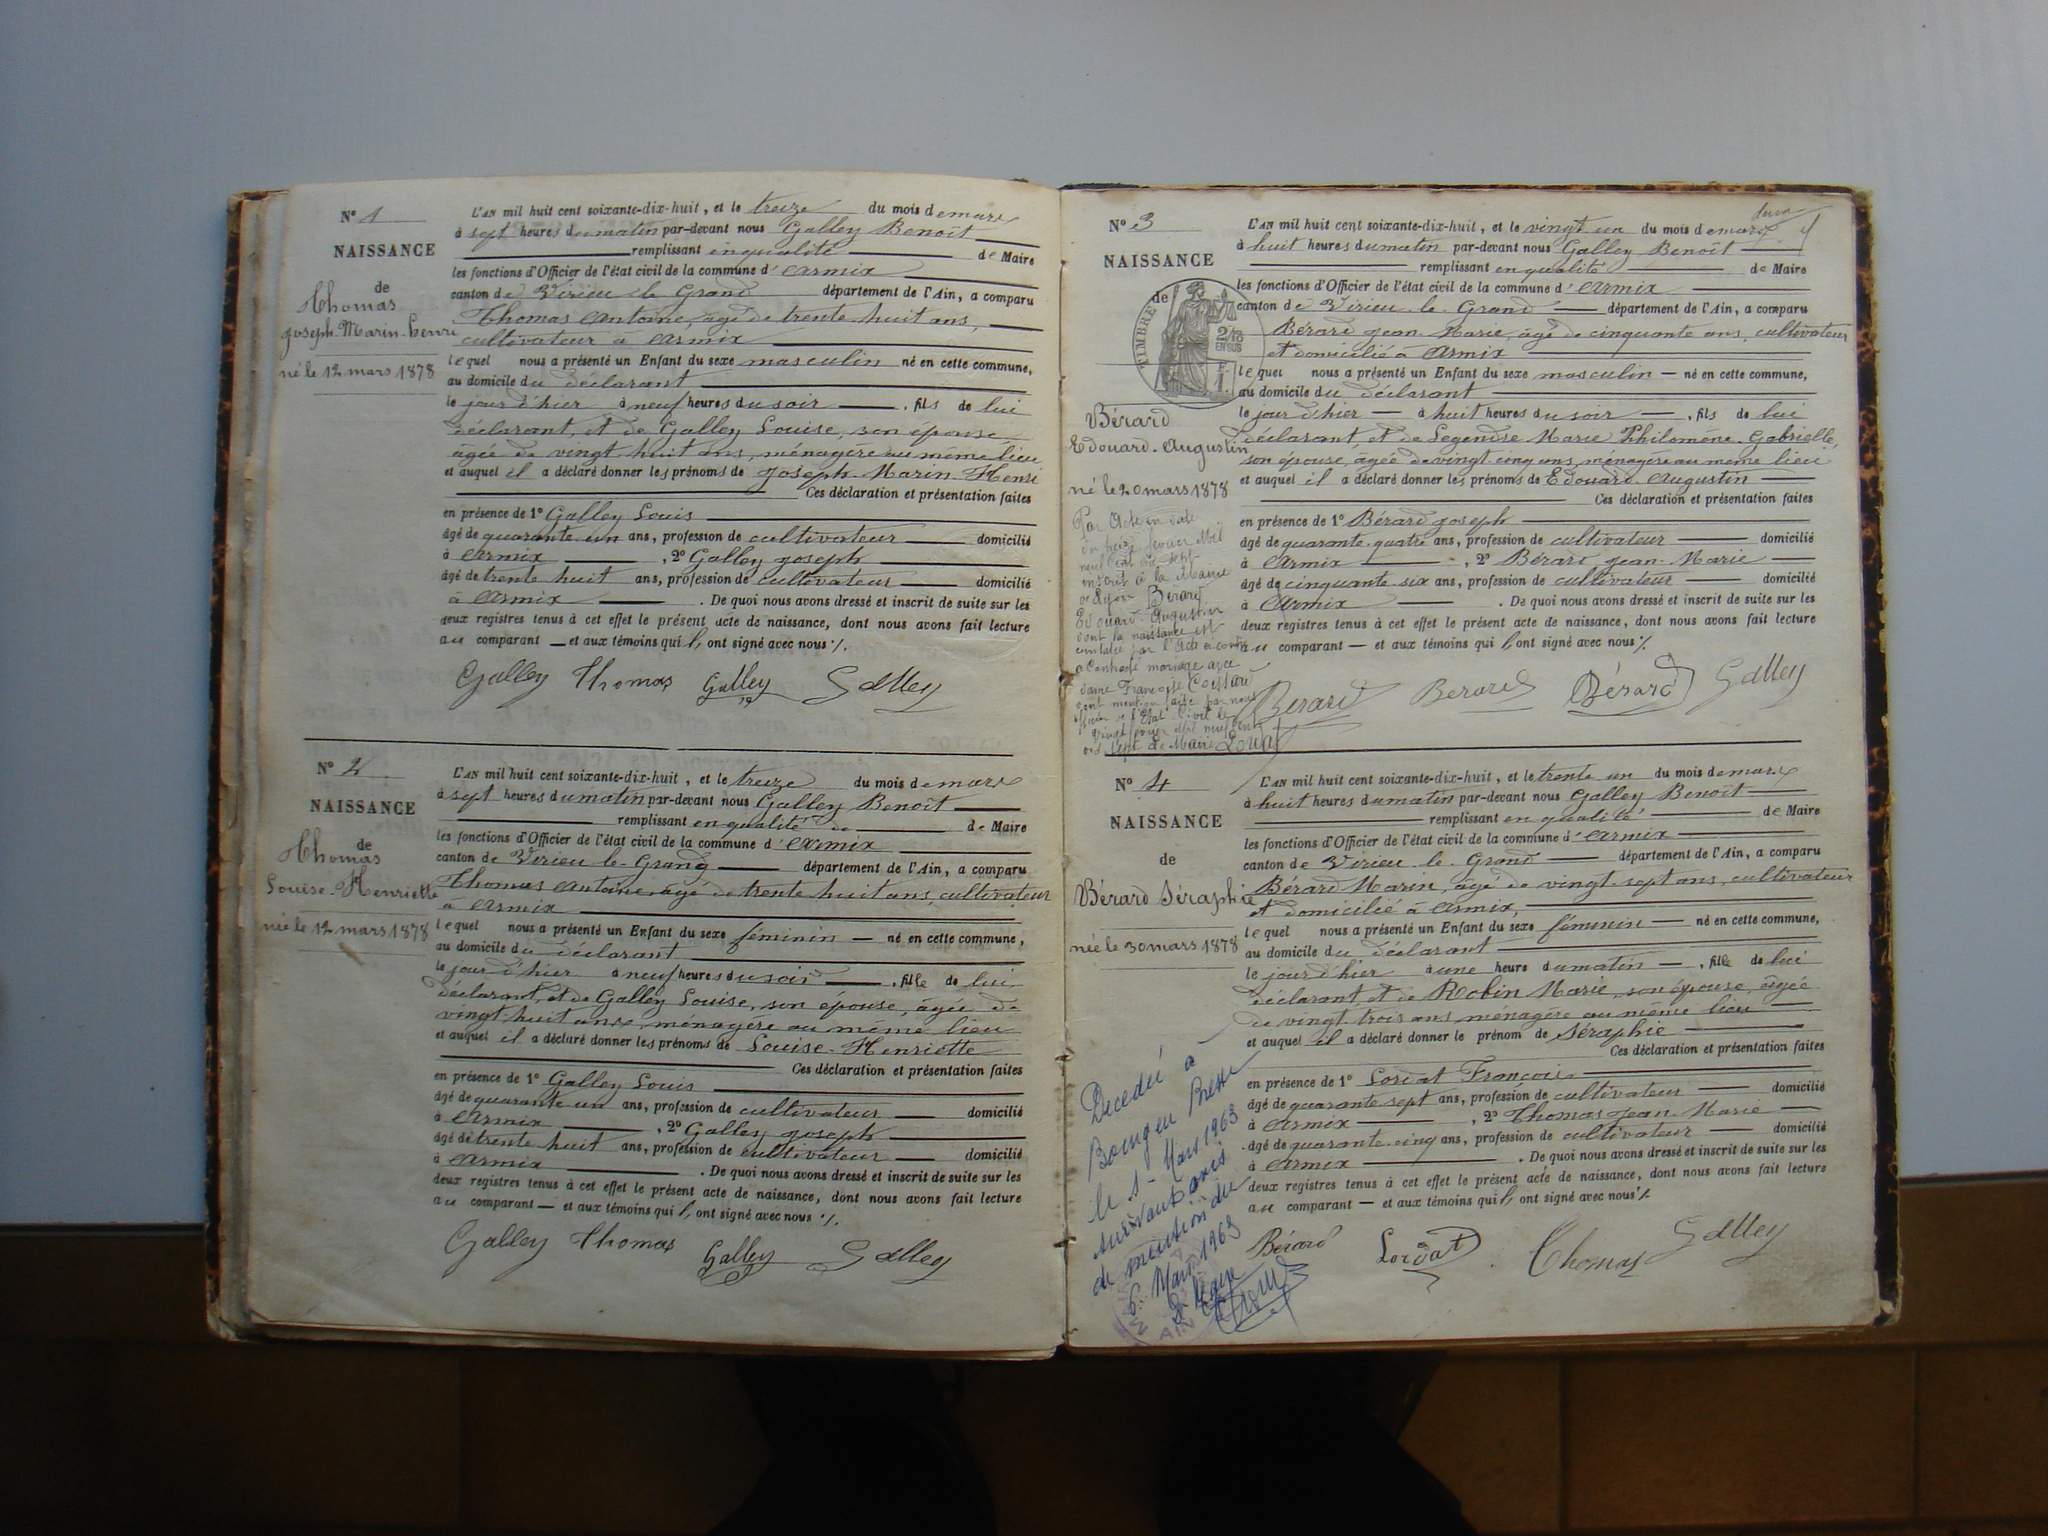 N° 1
NAISSANCE
de
Thomas
Joseph-Marin-Henri
né le 12 mars 1878
L'AN mil huit cent soixante-dix-huit, et le treize du mois de mars
à sept heures du matin par-devant nous Galley Benoît
remplissant en qualité de Maire
les fonctions d'Officier de l'état civil de la commune d'Armix
canton de Virieu-le-Grand département de l'Ain, a comparu
Thomas Antoine, âgé de trente huit ans,
cultivateur à Armix
lequel nous a présenté un Enfant du sexe masculin né en cette commune,
au domicile du déclarant
le jour d'hier à neuf heures du soir, fils de lui
déclarant, et de Galley Louise, son épouse
âgée de vingt huit ans, ménagère au même lieu
et auquel il a déclaré donner les prénoms de Joseph-Marin-Henri
Ces déclaration et présentation faites
en présence de 1° Galley Louis
âgé de quarante un ans, profession de cultivateur domicilié
à Armix, 2° Galley Joseph
âgé de trente huit ans, profession de cultivateur domicilié
à Armix. De quoi nous avons dressé et inscrit de suite sur les
deux registres tenus à cet effet le présent acte de naissance, dont nous avons fait lecture
au comparant — et aux témoins qui ont signé avec nous ./.
Galley Thomas Galley Galley
N° 2
NAISSANCE
de
Thomas
Louise-Henriette
née le 12 mars 1878
L'AN mil huit cent soixante-dix-huit, et le treize du mois de mars
à sept heures du matin par-devant nous Galley Benoît
remplissant en qualité de de Maire
les fonctions d'Officier de l'état civil de la commune d'Armix
canton de Virieu-le-Grand département de l'Ain, a comparu
Thomas Antoine, âgé de trente huit ans, cultivateur
à Armix
lequel nous a présenté un Enfant du sexe féminin — né en cette commune,
au domicile du déclarant
le jour d'hier à neuf heures du soir, fille de lui
déclarant, et de Galley Louise, son épouse, âgée de
vingt huit ans, ménagère au même lieu
et auquel il a déclaré donner les prénoms de Louise-Henriette
Ces déclaration et présentation faites
en présence de 1° Galley Louis
âgé de quarante un ans, profession de cultivateur domicilié
à Armix, 2° Galley Joseph
âgé de trente huit ans, profession de cultivateur domicilié
à Armix. De quoi nous avons dressé et inscrit de suite sur les
deux registres tenus à cet effet le présent acte de naissance, dont nous avons fait lecture
au comparant — et aux témoins qui ont signé avec nous ./.
Galley Thomas Galley Galley
N° 3
NAISSANCE
de
TIMBRE
2/10
EN SUS
1 F.
Bérard
Edouard-Augustin
né le 20 mars 1878
Par Acte en date
du février Mil
neuf cent sept
inscrit à la Mairie
de Lyon Bérard
Edouard-Augustin
dont la naissance est
constatée par l'Acte ci-contre
a contracté mariage avec
dame Françoise
dont mention faite par nous
officier de l'Etat Civil le
vingt février Mil neuf cent
sept Le Maire Lordat
L'AN mil huit cent soixante-dix-huit, et le vingt un du mois de mars
à huit heures du matin par-devant nous Galley Benoît
remplissant en qualité de Maire
les fonctions d'Officier de l'état civil de la commune d'Armix
canton de Virieu-le-Grand département de l'Ain, a comparu
Bérard Jean-Marie, âgé de cinquante ans, cultivateur
et domicilié à Armix
lequel nous a présenté un Enfant du sexe masculin — né en cette commune,
au domicile du déclarant
le jour d'hier — à huit heures du soir —, fils de lui
déclarant, et de Legendre Marie Philomène-Gabrielle,
son épouse, âgée de vingt-cinq ans, ménagère au même lieu
et auquel il a déclaré donner les prénoms de Edouard-Augustin
Ces déclaration et présentation faites
en présence de 1° Bérard Joseph
âgé de quarante-quatre ans, profession de cultivateur domicilié
à Armix, 2° Bérard Jean-Marie
âgé de cinquante six ans, profession de cultivateur domicilié
à Armix. De quoi nous avons dressé et inscrit de suite sur les
deux registres tenus à cet effet le présent acte de naissance, dont nous avons fait lecture
au comparant — et aux témoins qui ont signé avec nous ./.
Bérard Berard Bérard Galley
N° 4
NAISSANCE
de
Bérard Séraphie
née le 30 mars 1878
Decedée à
Bourg en Bresse
le Mars 1963
suivant avis
de mention du
6 Mars 1963
Le Maire
AIN
L'AN mil huit cent soixante-dix-huit, et le trente un du mois de mars
à huit heures du matin par-devant nous Galley Benoît
remplissant en qualité de Maire
les fonctions d'Officier de l'état civil de la commune d'Armix
canton de Virieu-le-Grand département de l'Ain, a comparu
Bérard Marin, âgé de vingt-sept ans, cultivateur
et domicilié à Armix,
lequel nous a présenté un Enfant du sexe féminin — né en cette commune,
au domicile du déclarant
le jour d'hier à une heure du matin —, fille de lui
déclarant, et de Robin Marie, son épouse, âgée
de vingt-trois ans ménagère au même lieu
et auquel il a déclaré donner le prénom de Séraphie
Ces déclaration et présentation faites
en présence de 1° Lordat François
âgé de quarante sept ans, profession de cultivateur domicilié
à Armix, 2° Thomas Jean-Marie
âgé de quarante-cinq ans, profession de cultivateur domicilié
à Armix. De quoi nous avons dressé et inscrit de suite sur les
deux registres tenus à cet effet le présent acte de naissance, dont nous avons fait lecture
au comparant — et aux témoins qui ont signé avec nous ./.
Bérard Lordat Thomas Galley